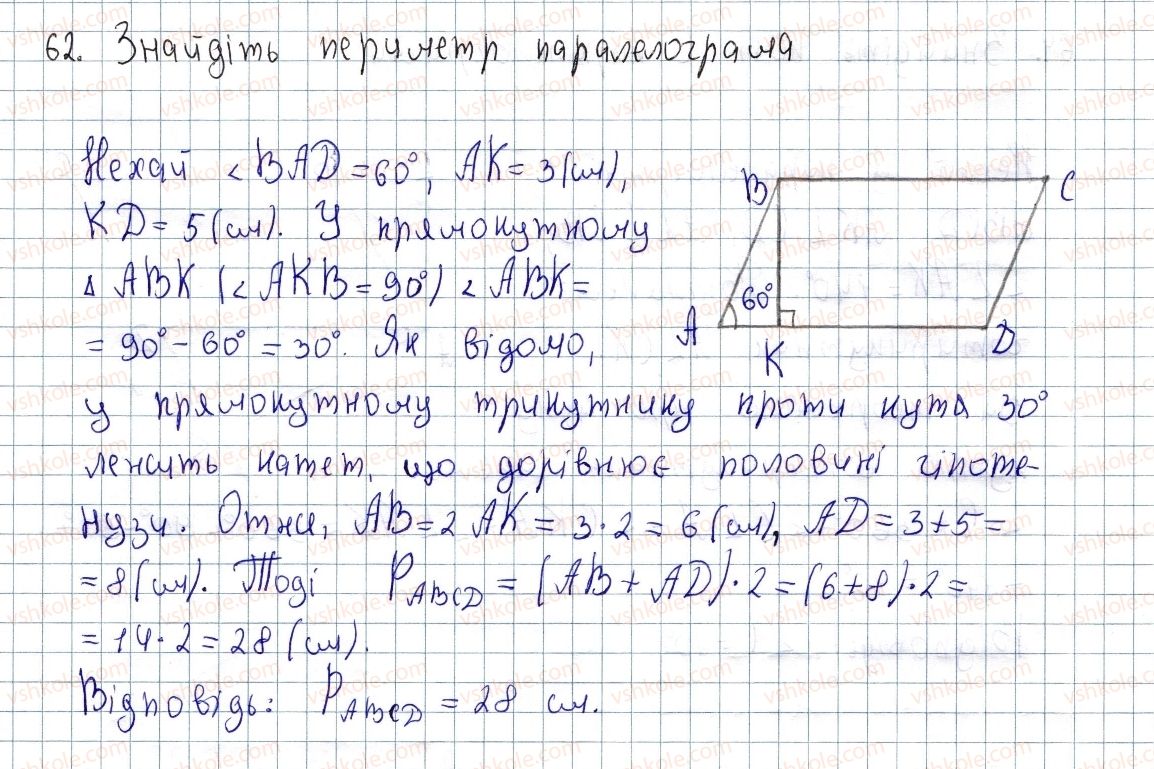 62. Знайдіть периметр паралелограма
Нехай < BAD = 60°, AK = 3 (см),
KD = 5 (см). У прямокутному
Δ ABK (< AKB = 90°) < ABK =
= 90° - 60° = 30°. Як відомо,
у прямокутному трикутнику проти кута 30°
лежить катет, що дорівнює половині гіпоте-
нузи. Отже, AB = 2 AK = 3 · 2 = 6 (см), AD = 3 + 5 =
= 8 (см). Тоді P ABCD = (AB + AD) · 2 = (6 + 8) · 2 =
= 14 · 2 = 28 (см).
Відповідь: P ABCD = 28 см.
B
C
60°
A
K
D
vshkole.com